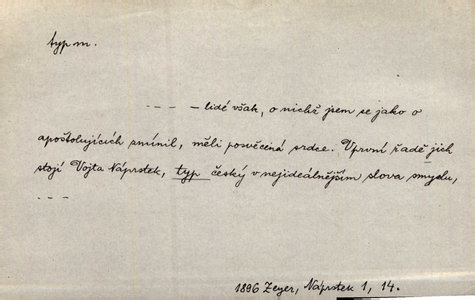 typ m.
- - - - lidé však, o nichž jsem se jako o
apoštolujících zmínil, měli posvěcená srdce. V první řadě jich
stojí Vojta Náprstek, typ český v nejideálnějším slova smyslu,
- - -
1896 Zeyer, Náprstek 1, 14.